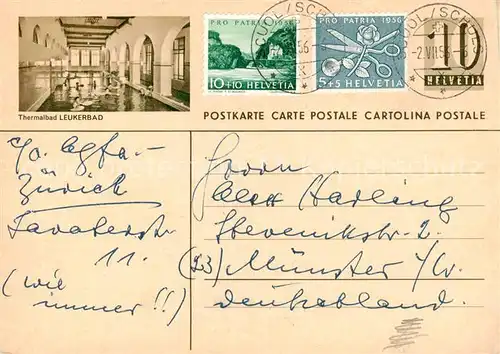 PRO PATRIA 1956
10+10 HELVETIA
PRO PATRIA 1956
5+5 HELVETIA
10
HELVETIA
Thermalbad LEUKERBAD
POSTKARTE CARTE POSTALE CARTOLINA POSTALE
c/o Agfa-
Zürich
Lavaterstr.
11.
(wie
immer!!)
Herrn
Harling
2.
(23) Münster i/W.
Deutschland.